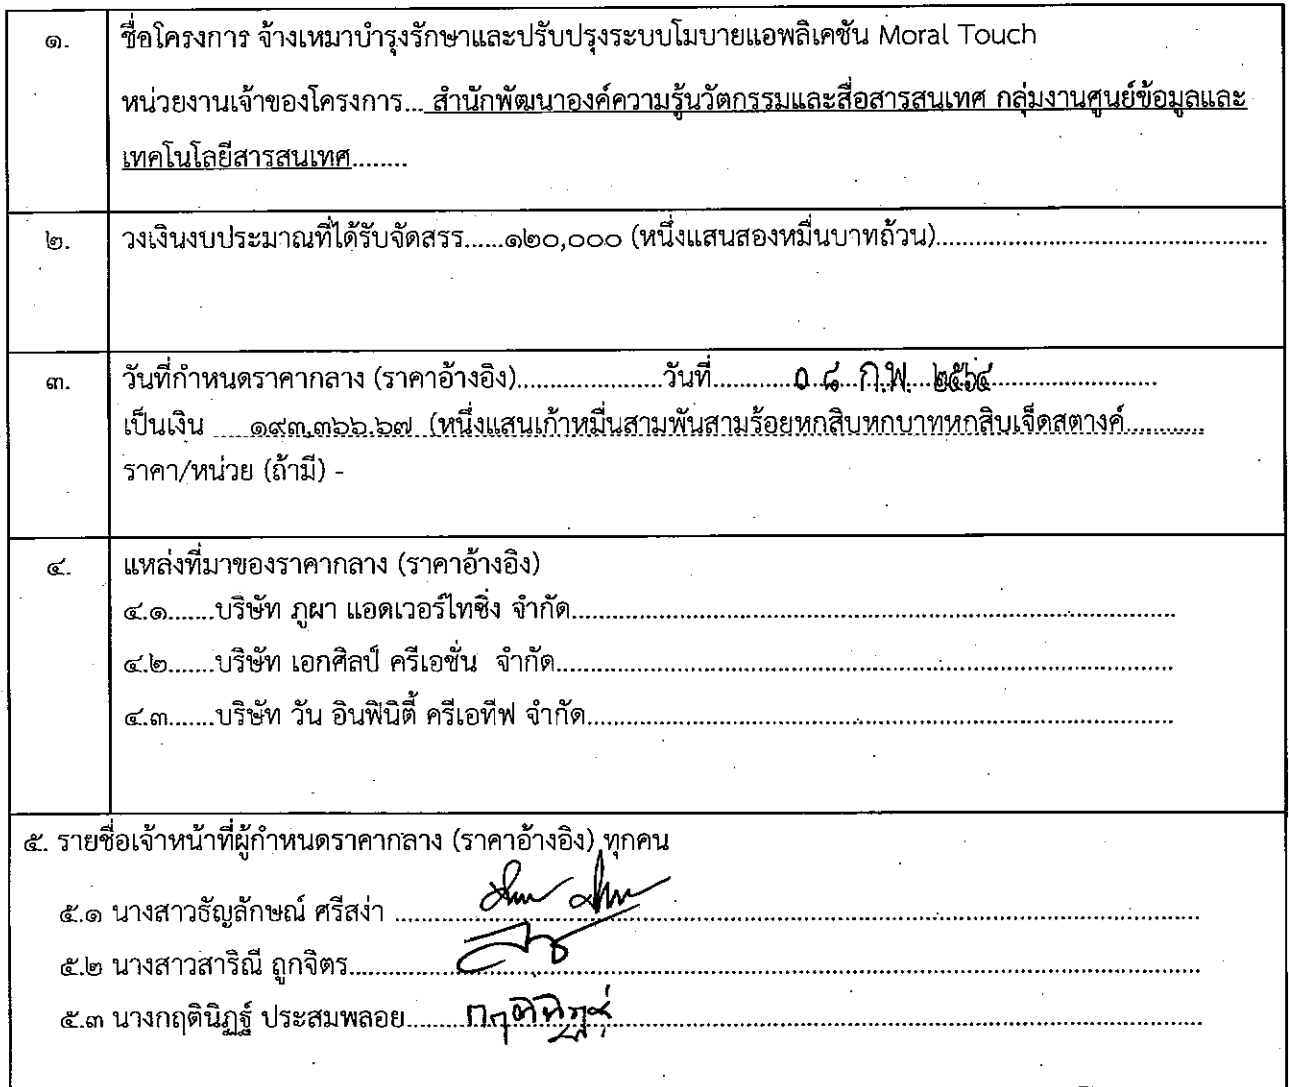 ๑. ชื่อโครงการ จ้างเหมาบำรุงรักษาและปรับปรุงระบบโมบายแอพลิเคชัน Moral Touch
หน่วยงานเจ้าของโครงการ... สำนักพัฒนาองค์ความรู้นวัตกรรมและสื่อสารสนเทศ กลุ่มงานศูนย์ข้อมูลและ
เทคโนโลยีสารสนเทศ........
๒. วงเงินงบประมาณที่ได้รับจัดสรร......๑๒๐,๐๐๐ (หนึ่งแสนสองหมื่นบาทถ้วน)................................................
๓. วันที่กำหนดราคากลาง (ราคาอ้างอิง).....................วันที่............๐ ๘ ก.พ. ๒๕๖๔.........................
เป็นเงิน .....๑๙๓,๓๖๖.๖๗ (หนึ่งแสนเก้าหมื่นสามพันสามร้อยหกสิบหกบาทหกสิบเจ็ดสตางค์............
ราคา/หน่วย (ถ้ามี) -
๔. แหล่งที่มาของราคากลาง (ราคาอ้างอิง)
๔.๑.......บริษัท ภูผา แอดเวอร์ไทซิ่ง จำกัด................................................................................
๔.๒.......บริษัท เอกศิลป์ ครีเอชั่น จำกัด................................................................................
๔.๓.......บริษัท วัน อินฟินิตี้ ครีเอทีฟ จำกัด................................................................................
๕. รายชื่อเจ้าหน้าที่ผู้กำหนดราคากลาง (ราคาอ้างอิง) ทุกคน
๕.๑ นางสาวธัญลักษณ์ ศรีสง่า ................................................................................
๕.๒ นางสาวสาริณี ถูกจิตร................................................................................
๕.๓ นางกฤตินิฏฐ์ ประสมพลอย........กฤตินิฏฐ์................................................................